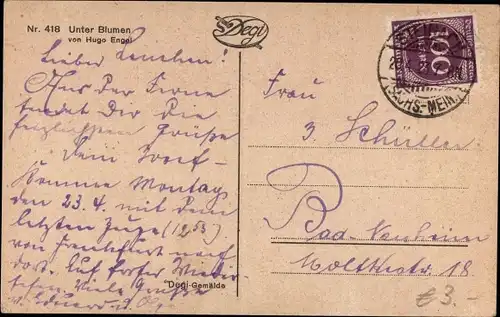 Nr. 418 Unter Blumen
von Hugo Engel
Degi
100
(SACHS-MEIN.)
Lieber Lenchen!
Aus der Ferne
sendet Dir die
herzlichsten Grüße
Dein
Komme Montag
den 23.4. mit dem
letzten Zuge (12 53)
von Frankfurt nach
dort. Auf frohes Wieder-
sehen. Viele Grüße
Degi-Gemälde
Frau
J. Schüller
Bad-Nauheim
Moltkestr. 18
€3.-